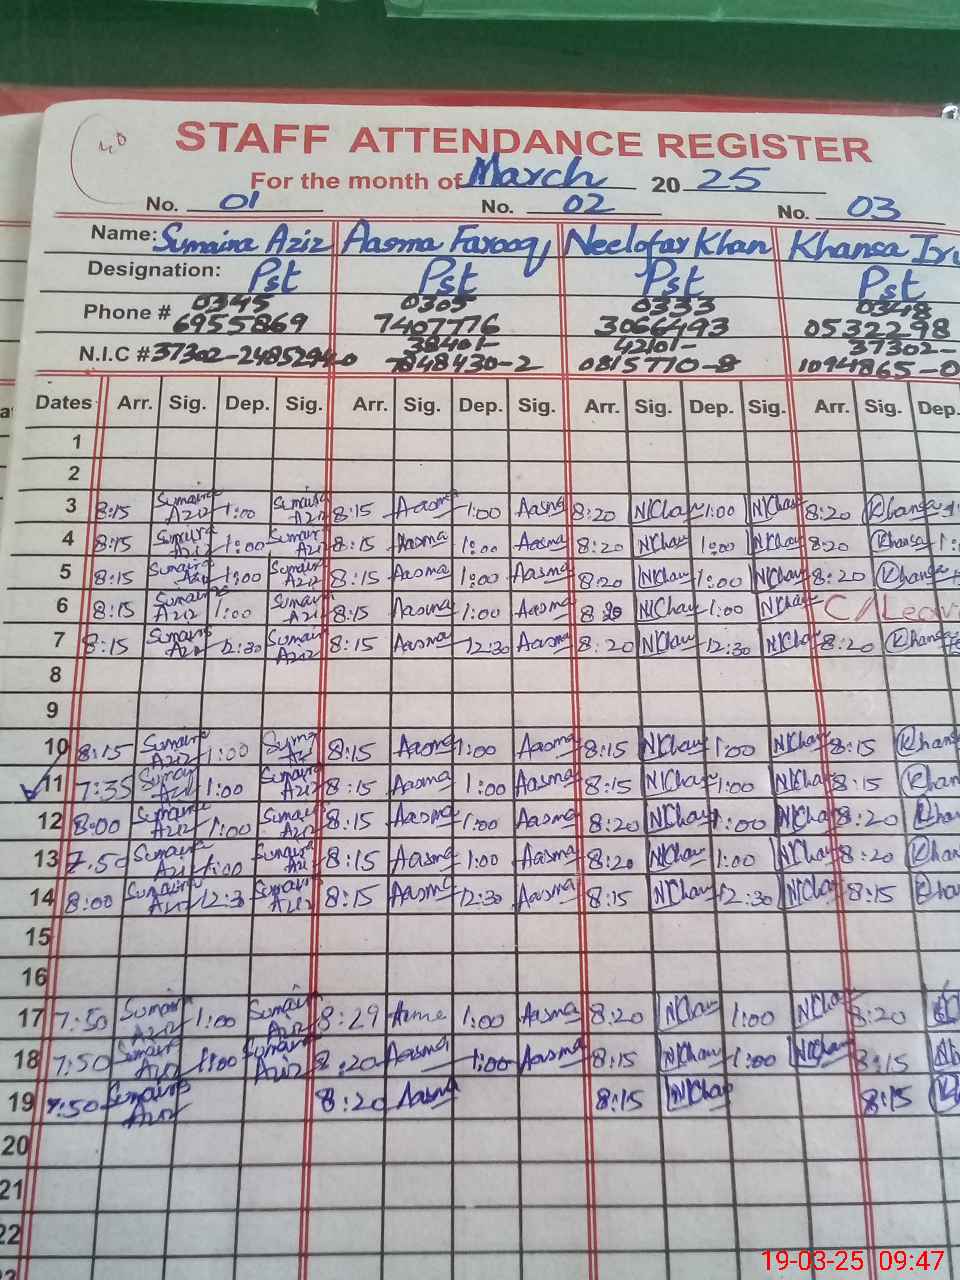 STAFF ATTENDANCE REGISTER
For the month of March 2025
No. 01 No. 02 No. 03
Name: Sumaira Aziz Aasma Farooq Neelofar Khan Khansa
Designation: Pst Pst Pst Pst
Phone # 0345 0305 0333 0348
6955869 7407776 3066493 0532298
N.I.C # 37302- 38401- 42101- 37302-
7848430-2 0815770-8 1094865-0
Dates Arr. Sig. Dep. Sig. Arr. Sig. Dep. Sig. Arr. Sig. Dep. Sig. Arr. Sig. Dep.
1
2
3 8:15 Sumaira Aziz 1:00 Sumaira Aziz 8:15 Aasma 1:00 Aasma 8:20 NKhan 1:00 NKhan 8:20 Khansa
4 8:15 Sumaira Aziz 1:00 Sumaira Aziz 8:15 Aasma 1:00 Aasma 8:20 NKhan 1:00 NKhan 8:20 Khansa
5 8:15 Sumaira Aziz 1:00 Sumaira Aziz 8:15 Aasma 1:00 Aasma 8:20 NKhan 1:00 NKhan 8:20 Khansa
6 8:15 Sumaira Aziz 1:00 Sumaira Aziz 8:15 Aasma 1:00 Aasma 8:20 NKhan 1:00 NKhan C/Leave
7 8:15 Sumaira Aziz 12:30 Sumaira Aziz 8:15 Aasma 12:30 Aasma 8:20 NKhan 12:30 NKhan 8:20 Khansa
8
9
10 8:15 Sumaira Aziz 1:00 Sumaira Aziz 8:15 Aasma 1:00 Aasma 8:15 NKhan 1:00 NKhan 8:15 Khans
11 7:35 Sumaira Aziz 1:00 Sumaira Aziz 8:15 Aasma 1:00 Aasma 8:15 NKhan 1:00 NKhan 8:15 Khan
12 8:00 Sumaira Aziz 1:00 Sumaira Aziz 8:15 Aasma 1:00 Aasma 8:20 NKhan 1:00 NKhan 8:20 Khan
13 7:50 Sumaira Aziz 1:00 Sumaira Aziz 8:15 Aasma 1:00 Aasma 8:20 NKhan 1:00 NKhan 8:20 Khan
14 8:00 Sumaira Aziz 12:3 Sumaira Aziz 8:15 Aasma 12:30 Aasma 8:15 NKhan 12:30 NKhan 8:15 Khan
15
16
17 7:50 Sumaira Aziz 1:00 Sumaira Aziz 8:29 1:00 Aasma 8:20 NKhan 1:00 NKhan 8:20
18 7:50 Sumaira Aziz 1:00 Sumaira Aziz 8:20 Aasma 1:00 Aasma 8:15 NKhan 1:00 NKhan 8:15
19 7:50 Sumaira Aziz 8:20 Aasma 8:15 NKhan 8:15
20
21
22
19-03-25 09:47